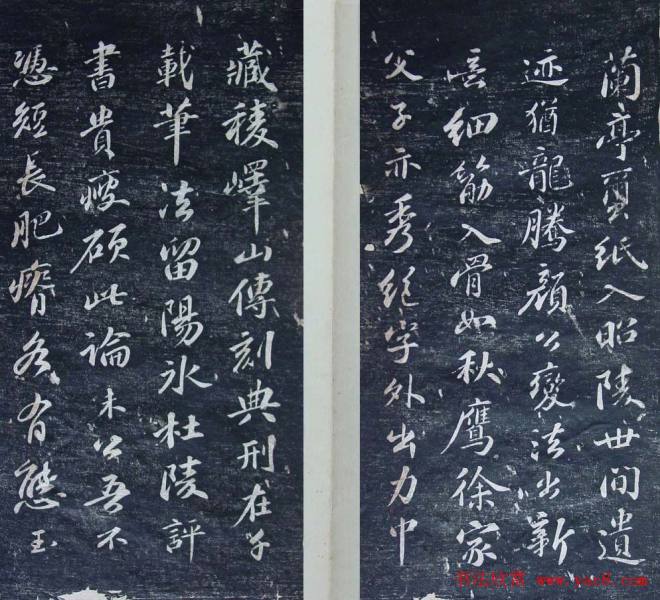 蘭亭蠒紙入昭陵世間遺
迹猶龍騰顏公變法出新
意細筋入骨如秋鷹徐家
父子亦秀絕字外出力中
藏稜嶧山傳刻典刑在千
載筆法留陽冰杜陵評
書貴瘦硬此論未公吾不
憑短長肥瘠各有態玉
书法欣赏 www.yac8.com